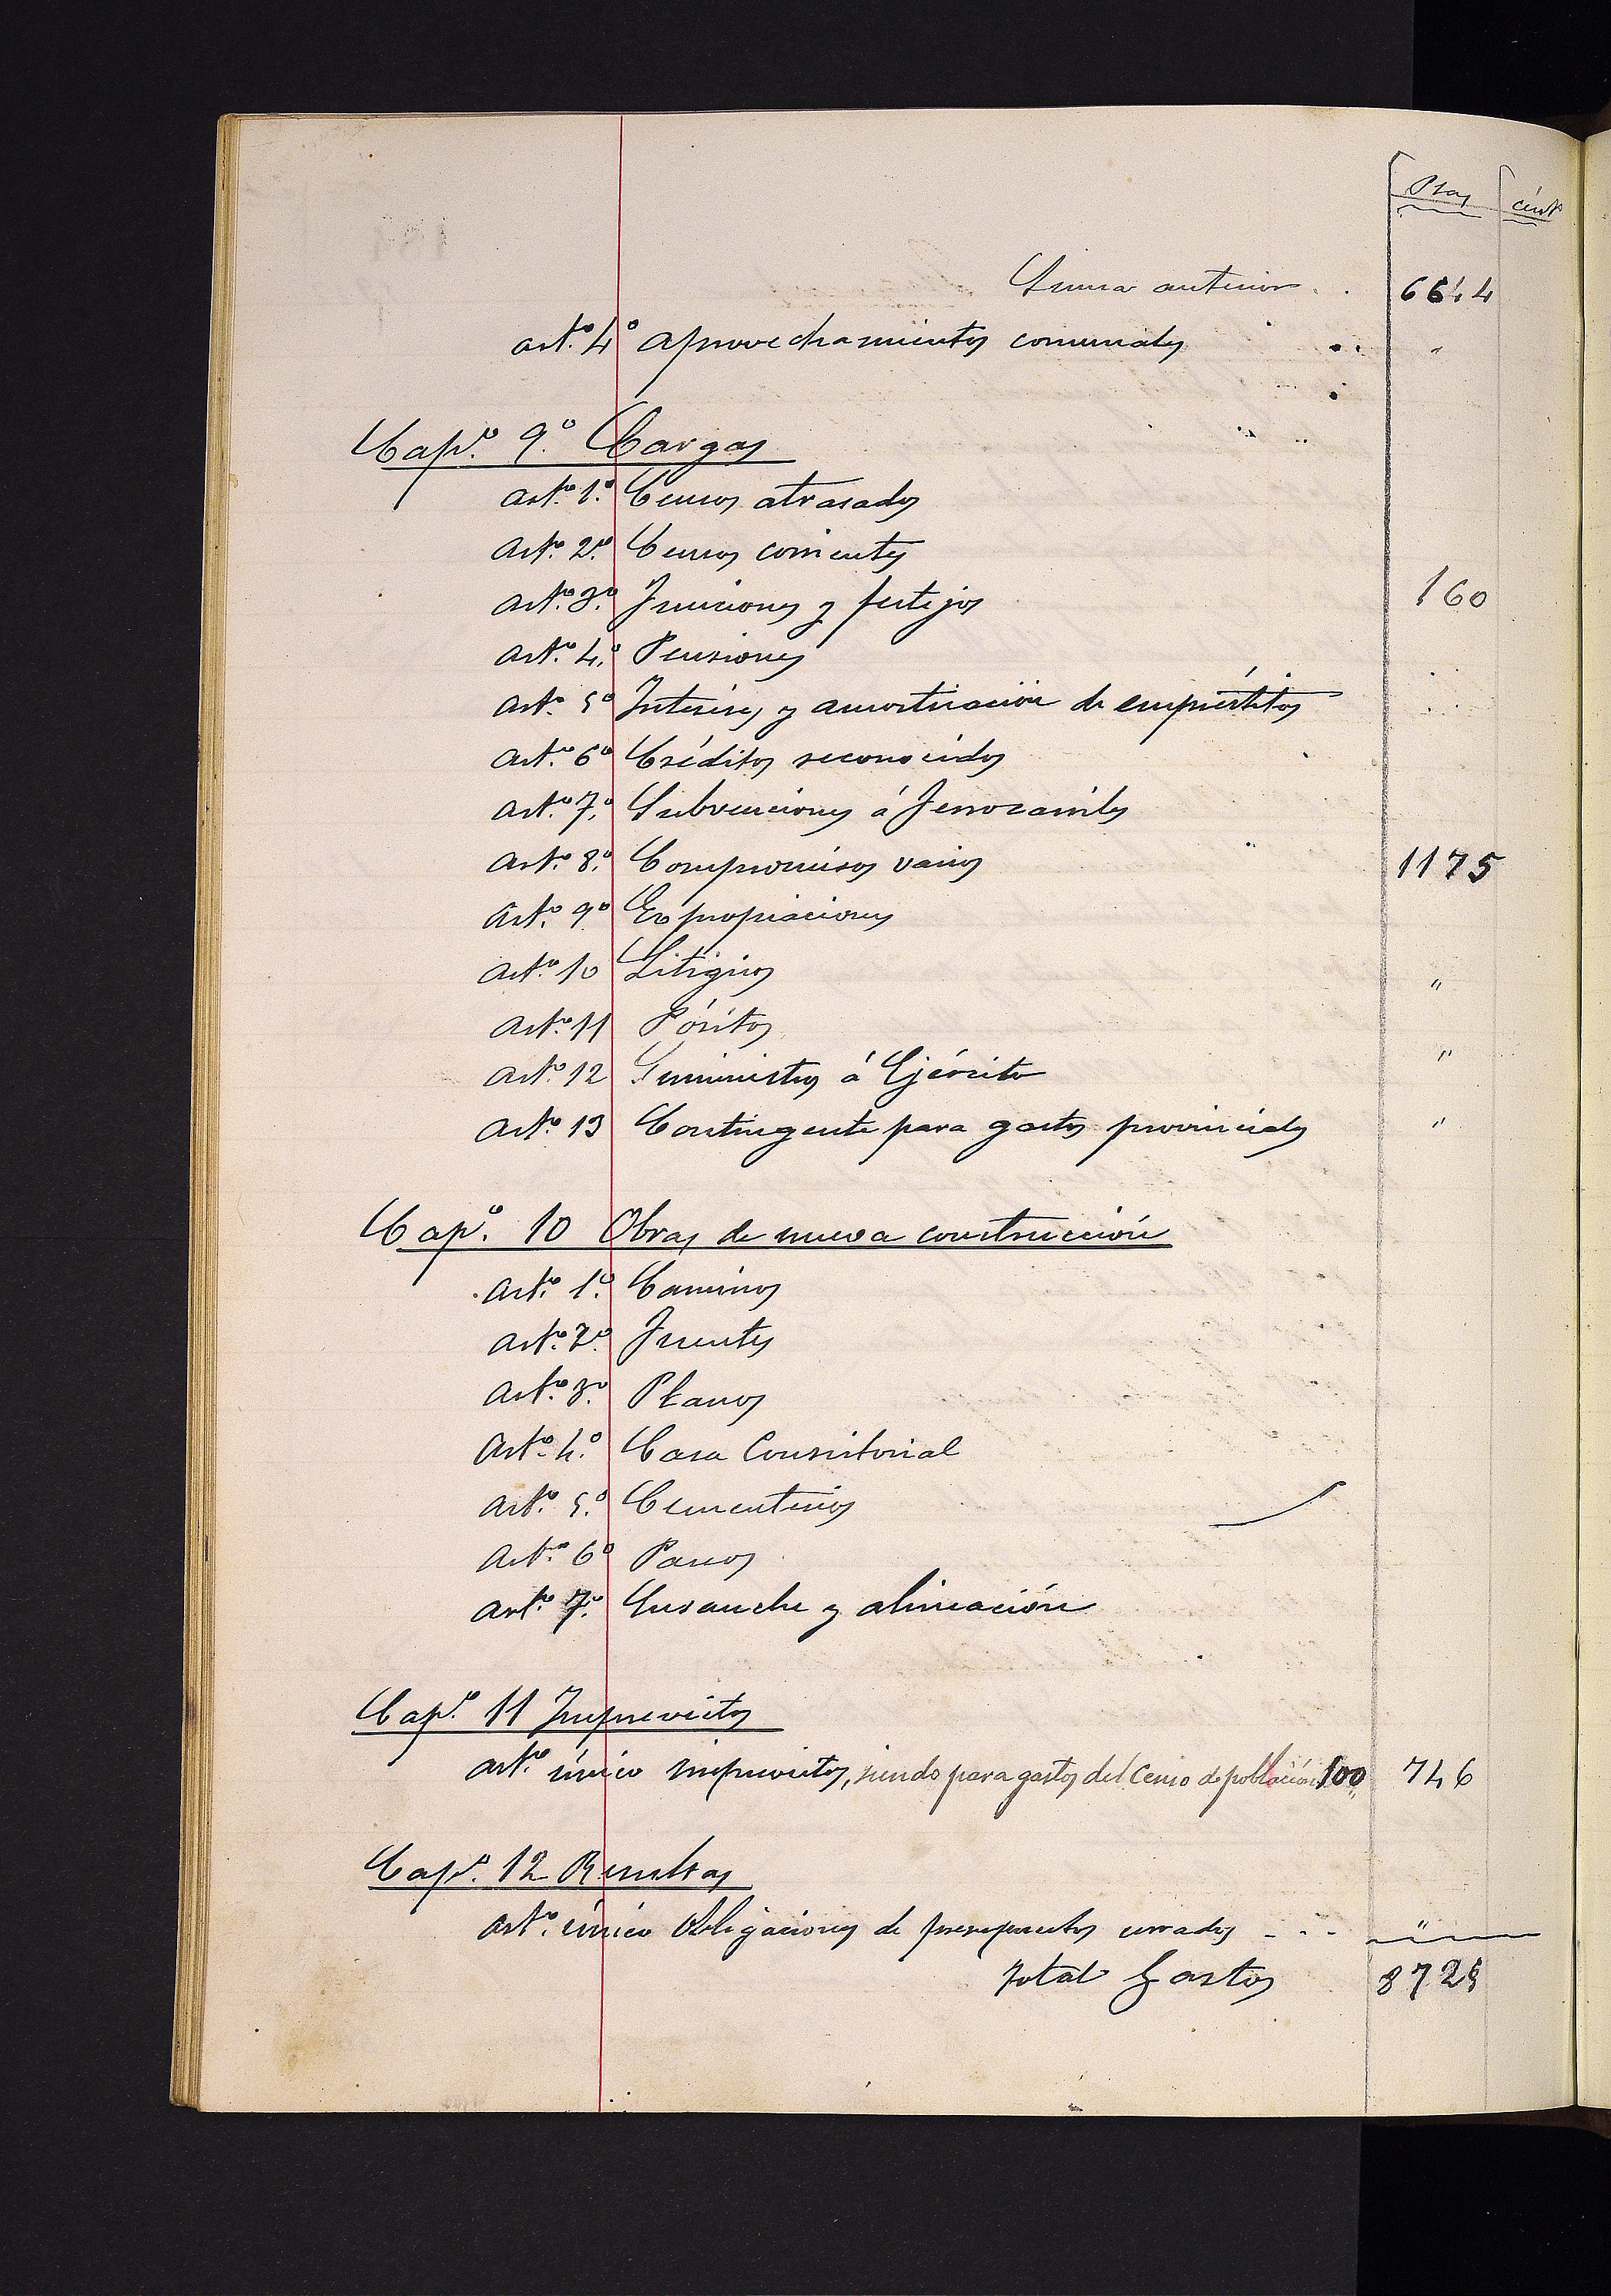 Ptas cént.
Suma anterior . . 6644
art.º 4º aprovechamientos comunales . . "
Cap.º 9.º Cargas
art.º 1.º Censos atrasados
art.º 2.º Censos corrientes
art.º 3.º Funciones y festejos 160
art.º 4.º Pensiones
art.º 5º Intereses y amortización de empréstitos
art.º 6º Créditos reconocidos
art.º 7.º Subvenciones á ferrocarriles
art.º 8.º Compromisos varios 1175
art.º 9º Expropiaciones
art.º 10 Litigios "
art.º 11 Pósitos
art.º 12 Suministros á Ejército "
art.º 13 Contingente para gastos provinciales "
Cap.º 10 Obras de nueva construcción
art.º 1.º Caminos
art.º 2.º Fuentes
art.º 3.º Planos
art.º 4.º Casa Consistorial
art.º 5.º Cementerios
art.º 6º Paseos
art.º 7.º Ensanche y alineación
Cap.º 11 Imprevistos
art.º único imprevistos, siendo para gastos del Censo de población 100 746
Cap.º 12 Resultas
art.º único Obligaciones de presupuestos cerrados - - - "
total Gastos 8725